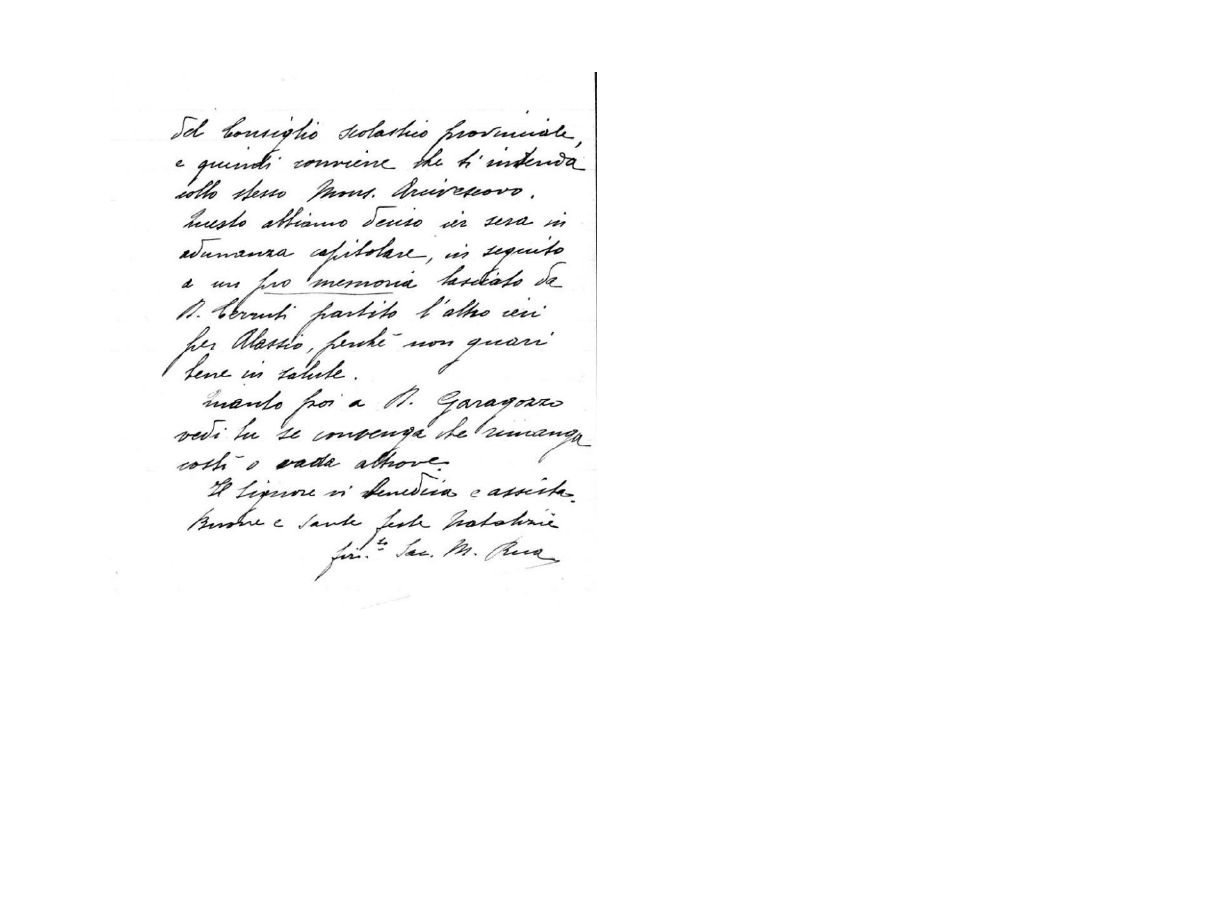 del Consiglio scolastico provinciale,
e quindi conviene che ti intenda
collo stesso Mons. Arcivescovo.
Questo abbiamo deciso ier sera in
adunanza capitolare, in seguito
a un pro memoria lasciato da
D. Cerruti partito l'altro ieri
per Alassio, perchè non guari
bene in salute.
Quanto poi a D. Garagozzo
vedi tu se convenga che rimanga
costì o vada altrove.
Il Signore vi benedica e assista.
Buone e sante feste Natalizie
fir.to Sac. M. Rua